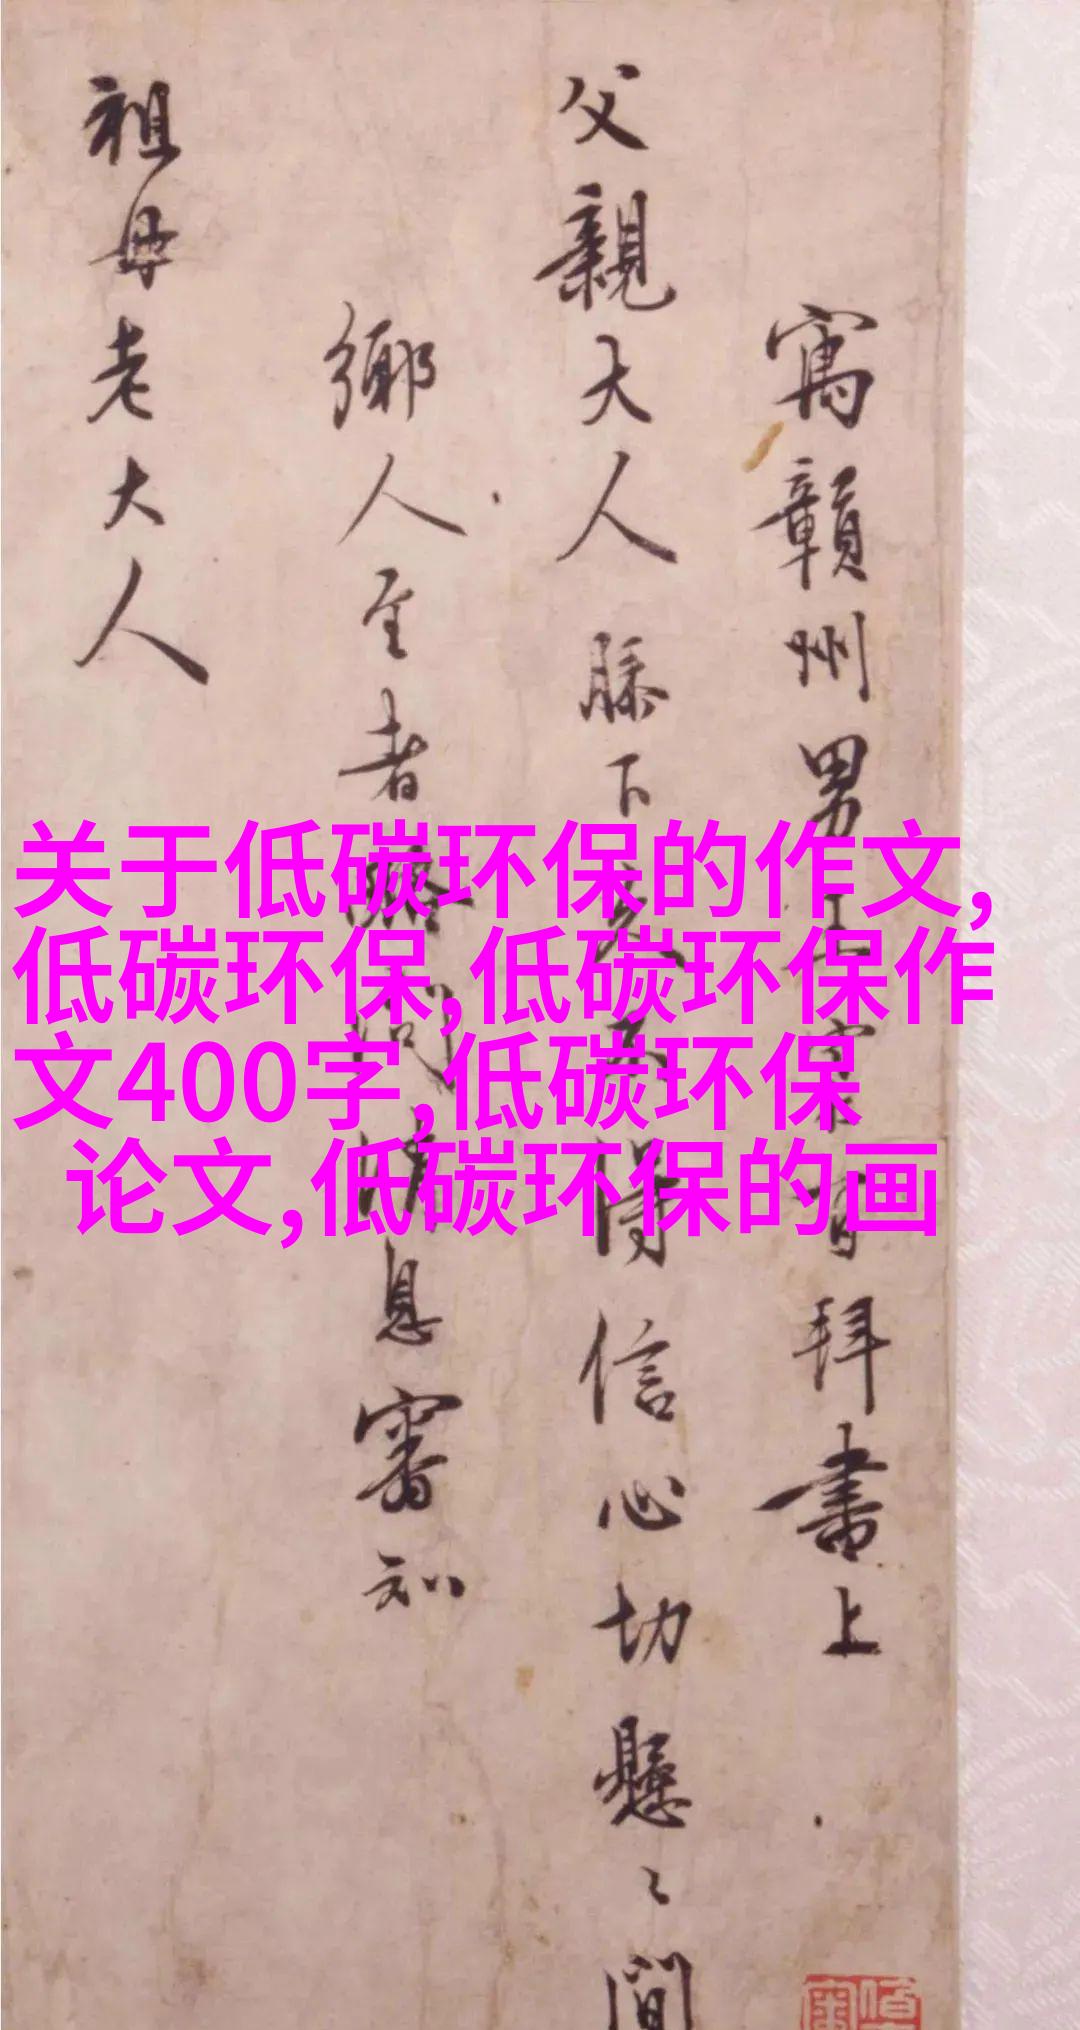 寓贛州男王守仁百拜書上
父親大人膝下久不得信心切懸〻間
鄉人至者 問消息審知
祖母老大人
关于低碳环保的作文,
低碳环保,低碳环保作
文400字,低碳环保
论文,低碳环保的画